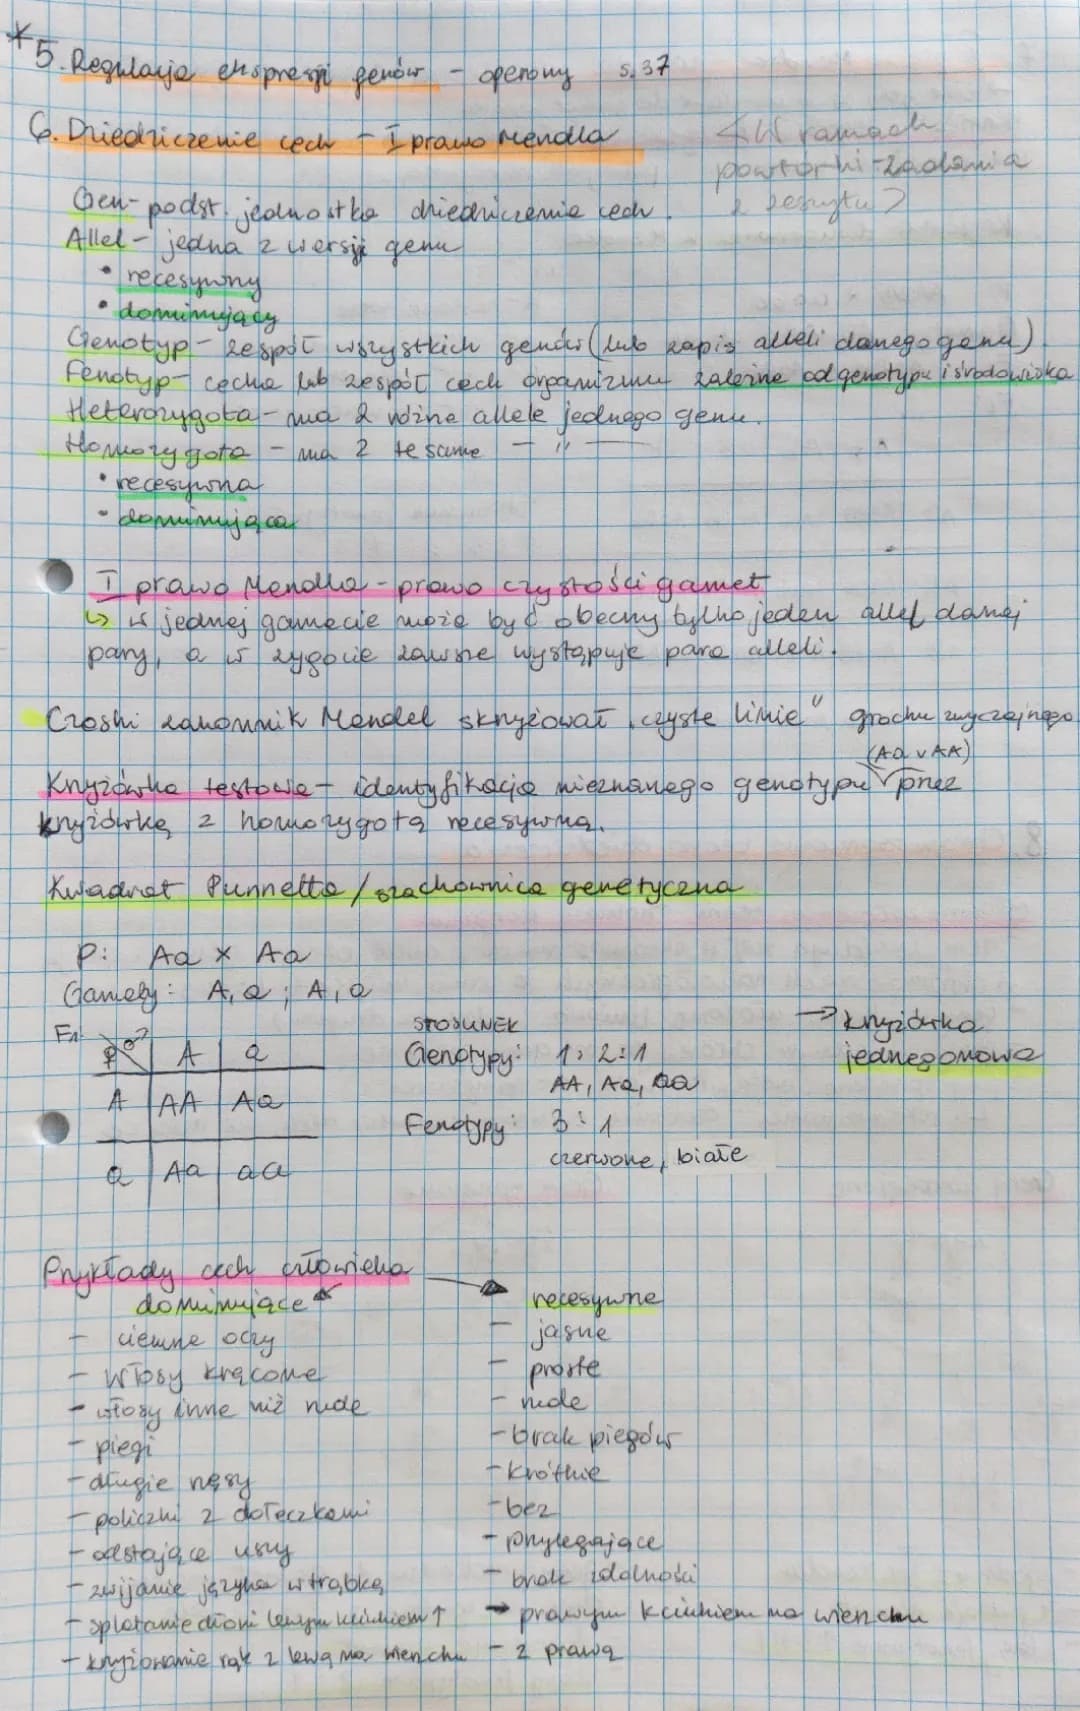 * 5. Regulacja ekspresji genów - operony s. 37
6. Dziedziczenie cech - I prawo Mendla
<W ramach
powtórki - zadania
z zeszytu>
Gen - podst. jednostka dziedziczenia cech.
Allel - jedna z wersji genu
• recesywny
• dominujący
Genotyp - zespół wszystkich genów (lub zapis alleli danego genu)
Fenotyp - cecha lub zespół cech organizmu zależne od genotypu i środowiska
Heterozygota - ma 2 różne allele jednego genu.
Homozygota - ma 2 te same — " —
• recesywna
• dominująca
I prawo Mendla - prawo czystości gamet
↳ w jednej gamecie może być obecny tylko jeden allel danej
pary, a w zygocie zawsze występuje para alleli.
Czeski zakonnik Mendel skrzyżował „czyste linie" grochu zwyczajnego
(Aa v AA)
Krzyżówka testowa - identyfikacja nieznanego genotypu przez
krzyżówkę z homozygotą recesywną.
Kwadrat Punnetta / szachownica genetyczna
P: Aa x Aa
Gamety: A, a ; A, a
F1:
♀ ♂ A a
A AA Aa
a Aa aa
STOSUNEK
Genotypy: 1 : 2 : 1
AA, Aa, aa
Fenotypy: 3 : 1
czerwone, białe
→ krzyżówka
jednegonowa
Przykłady cech człowieka
dominujące
- ciemne oczy
- włosy kręcone
- włosy inne niż rude
- piegi
- długie rzęsy
- policzki z dołeczkami
- odstające uszy
- zwijanie języka w trąbkę
- splatanie dłoni lewym kciukiem ↑
- krzyżowanie rąk z lewą na wierzchu
recesywne
- jasne
- proste
- rude
- brak piegów
- krótkie
- bez
- przylegające
- brak zdolności
- prawym kciukiem na wierzchu
- z prawą